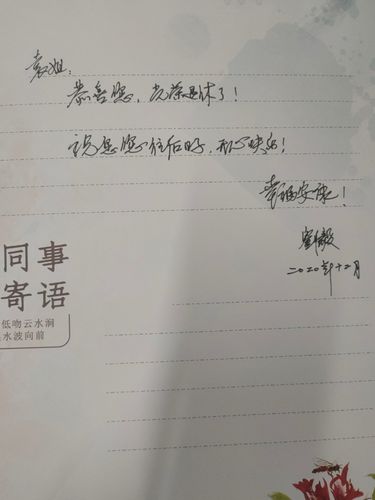 袁姐：
恭喜您，光荣退休了！
祝您往后好，开心快乐！
幸福安康！
二〇二〇年十二月
同事
寄语
低吻云水涧
水波向前